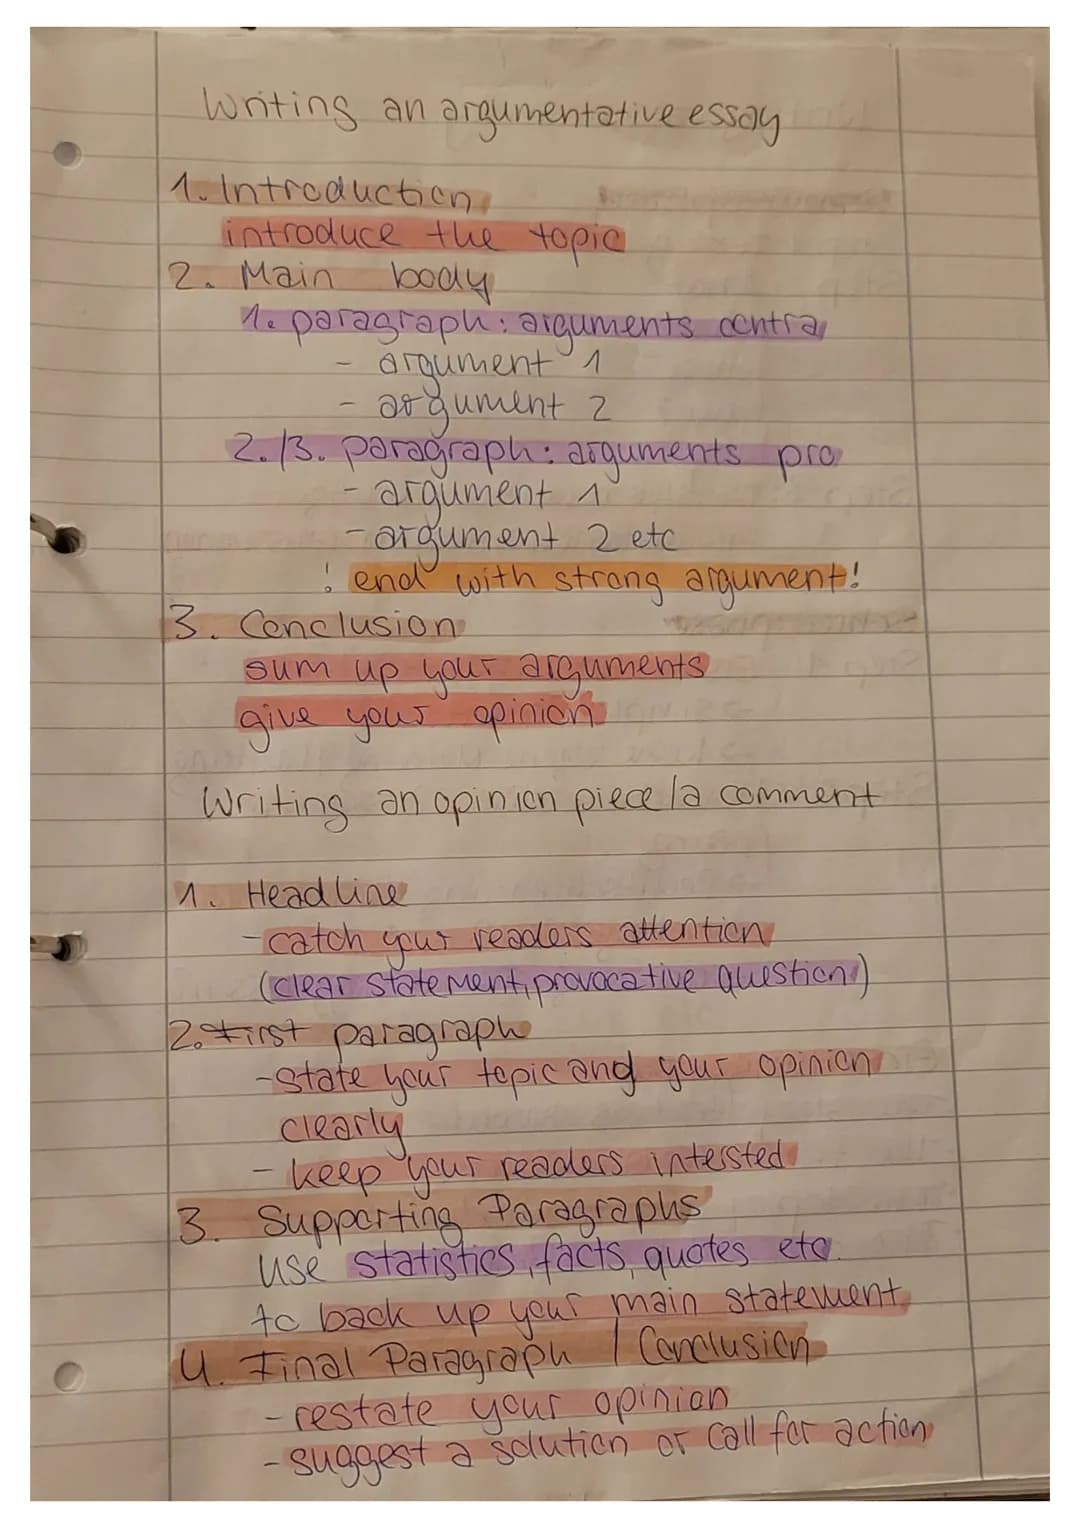 Writing an argumentative essay
1. Introduction
introduce the topic
2. Main body
1. paragraph: arguments contra
- argument 1
- argument 2
2./3. paragraph: arguments pro
- argument 1
- argument 2 etc
! end with strong argument!
3. Conclusion
sum up your arguments
give your opinion
Writing an opinion piece/a comment
1. Headline
- catch your readers attention
(clear statement, provocative question)
2. First paragraph
- state your topic and your opinion
clearly
- keep your readers intersted
3. Supporting Paragraphs
use statistics, facts, quotes etc.
to back up your main statement
4. Final Paragraph / Conclusion
- restate your opinion
- suggest a solution or call for action